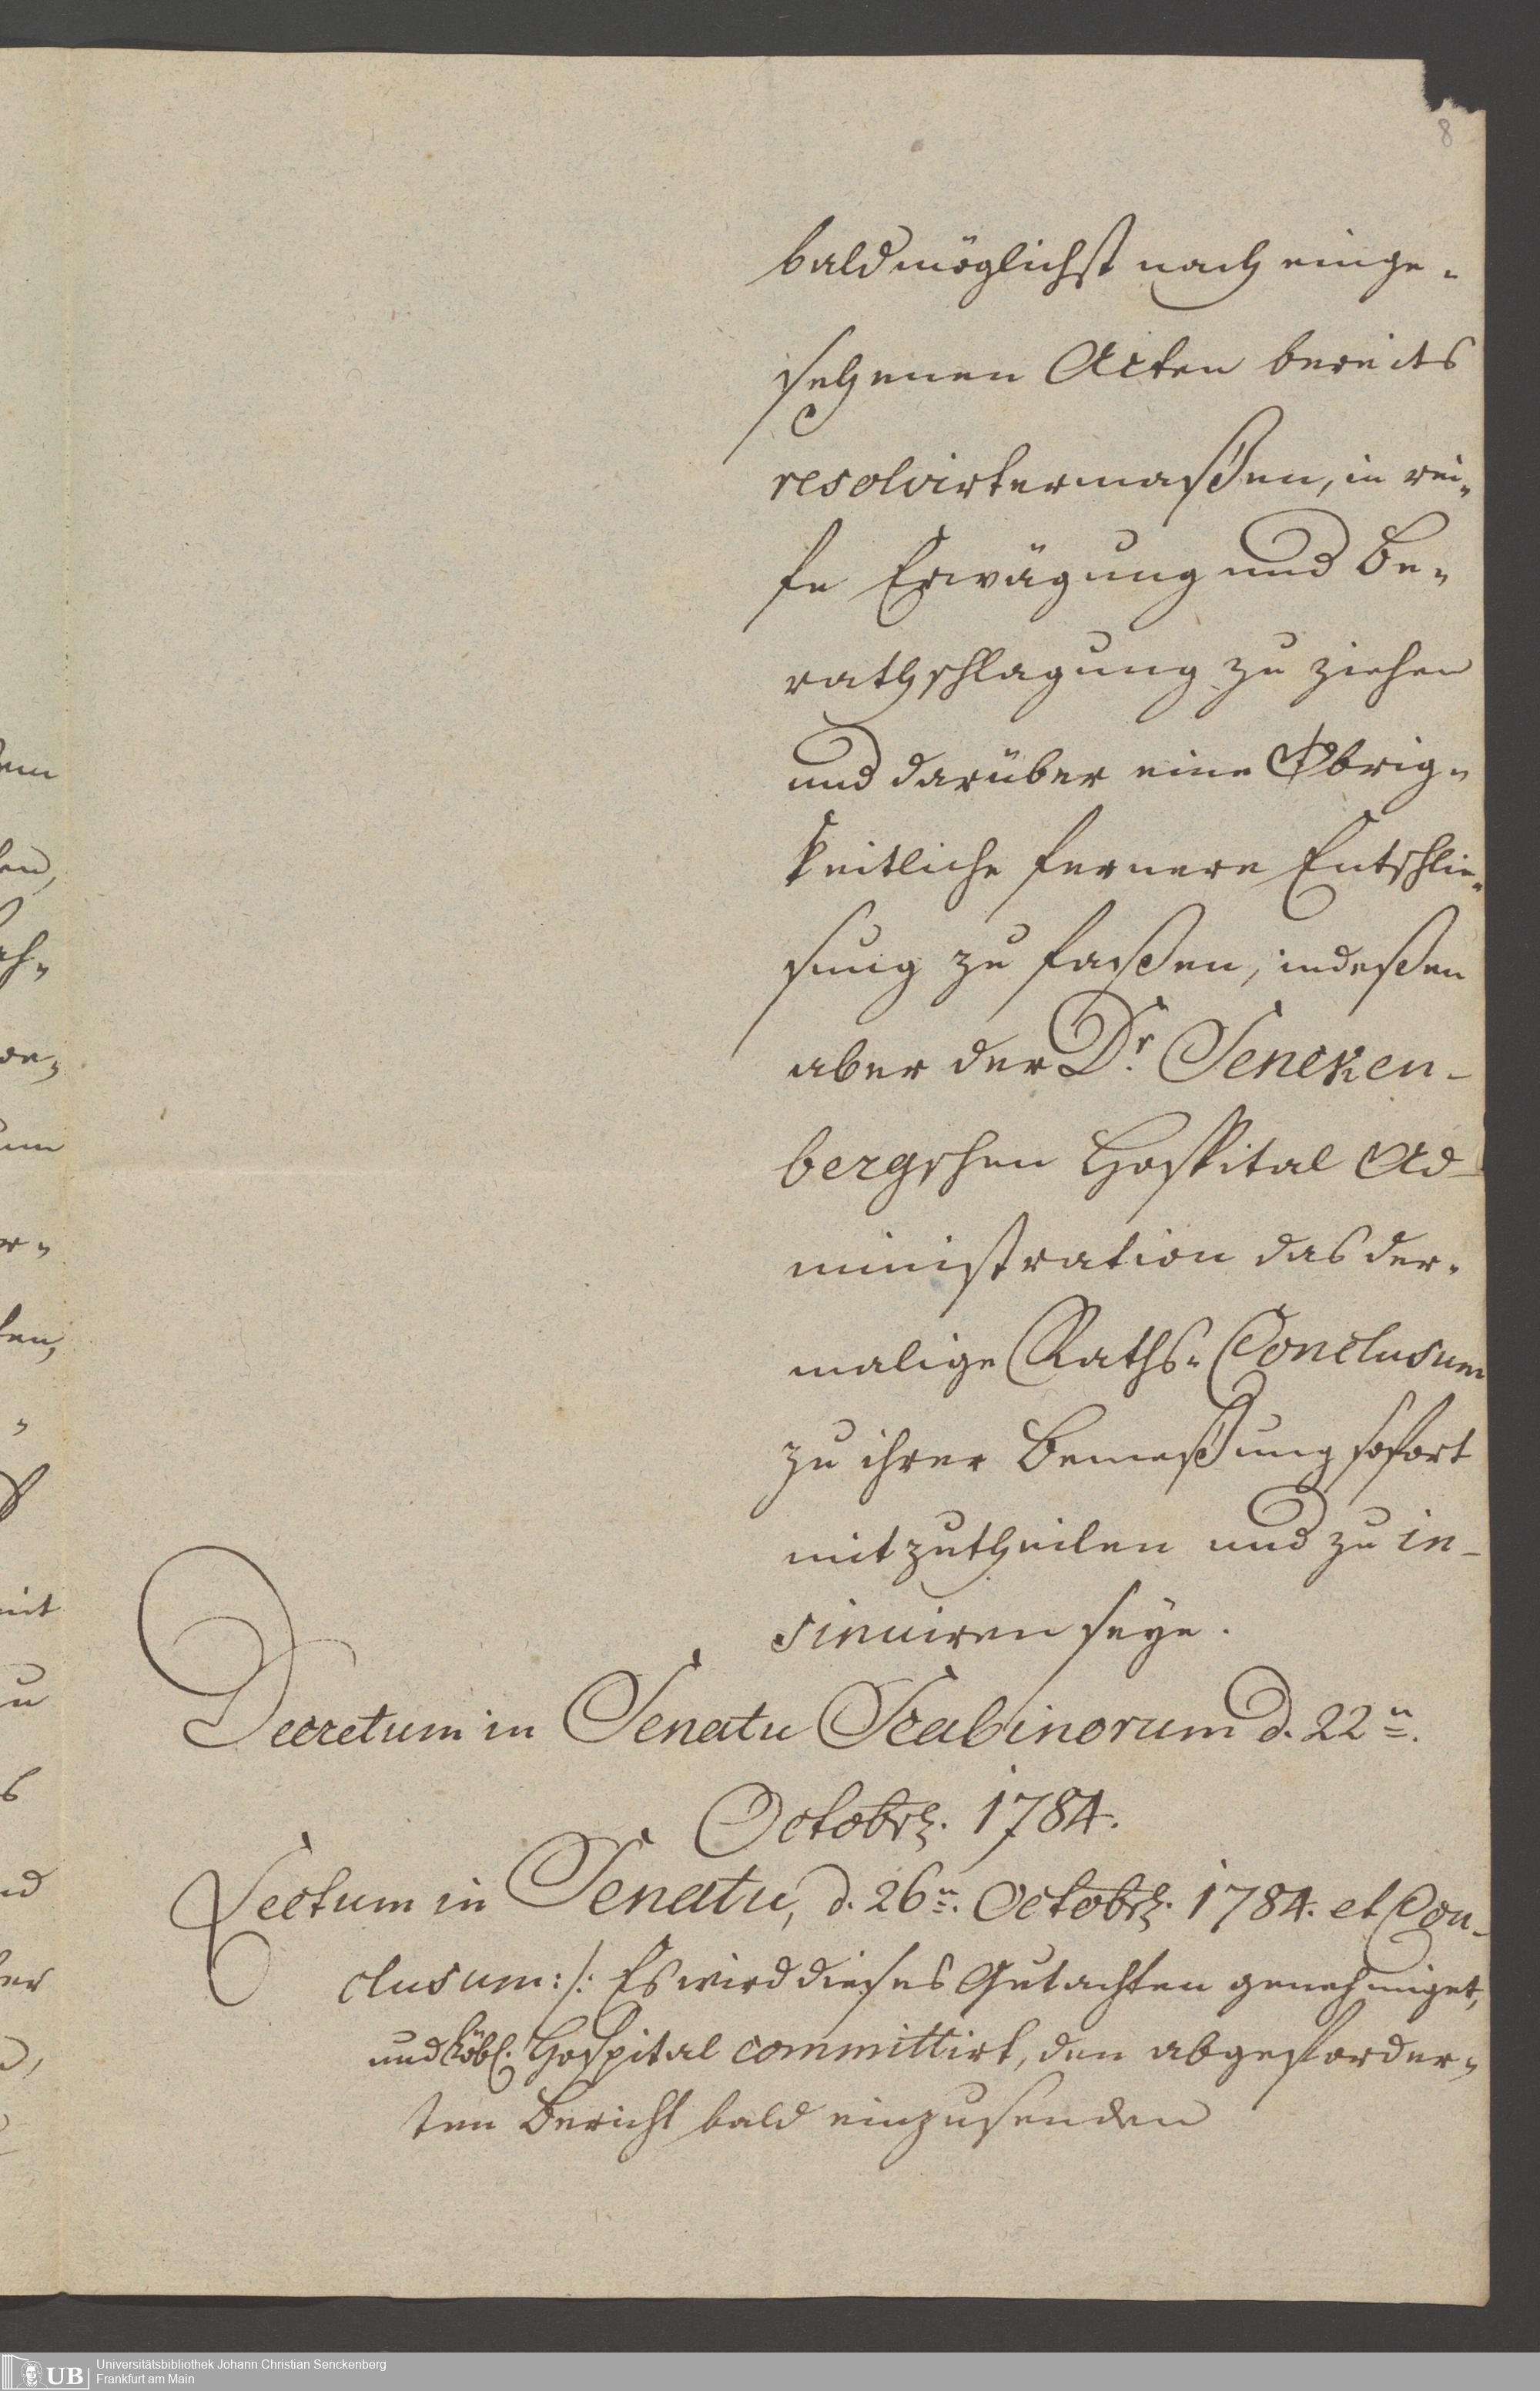 8
bald möglichst nach einge-
sehenen Acten bereits
resolvirtermaßen, in rei-
fe Erwägung und Be-
rathschlagung zu ziehen
und darüber eine Obrig-
keitliche fernere Entschlie-
sung zu faßen, indeßen
aber der Dr. Sencken-
bergschen Hospital Ad-
ministration das der-
malige Raths-Conclusum
zu ihrer Bemeßung sofort
mitzutheilen und zu in-
sinuiren seye.
Decretum in Senatu Scabinorum d. 22n.
Octobr. 1784.
Lectum in Senatu, d. 26n. Octobr. 1784. et Con-
clusum :/: Es wird dieses Gutachten genehmiget,
und Löbl. Hospital committirt, den abgeforder-
ten Bericht bald einzusenden
UB Universitätsbibliothek Johann Christian Senckenberg
Frankfurt am Main